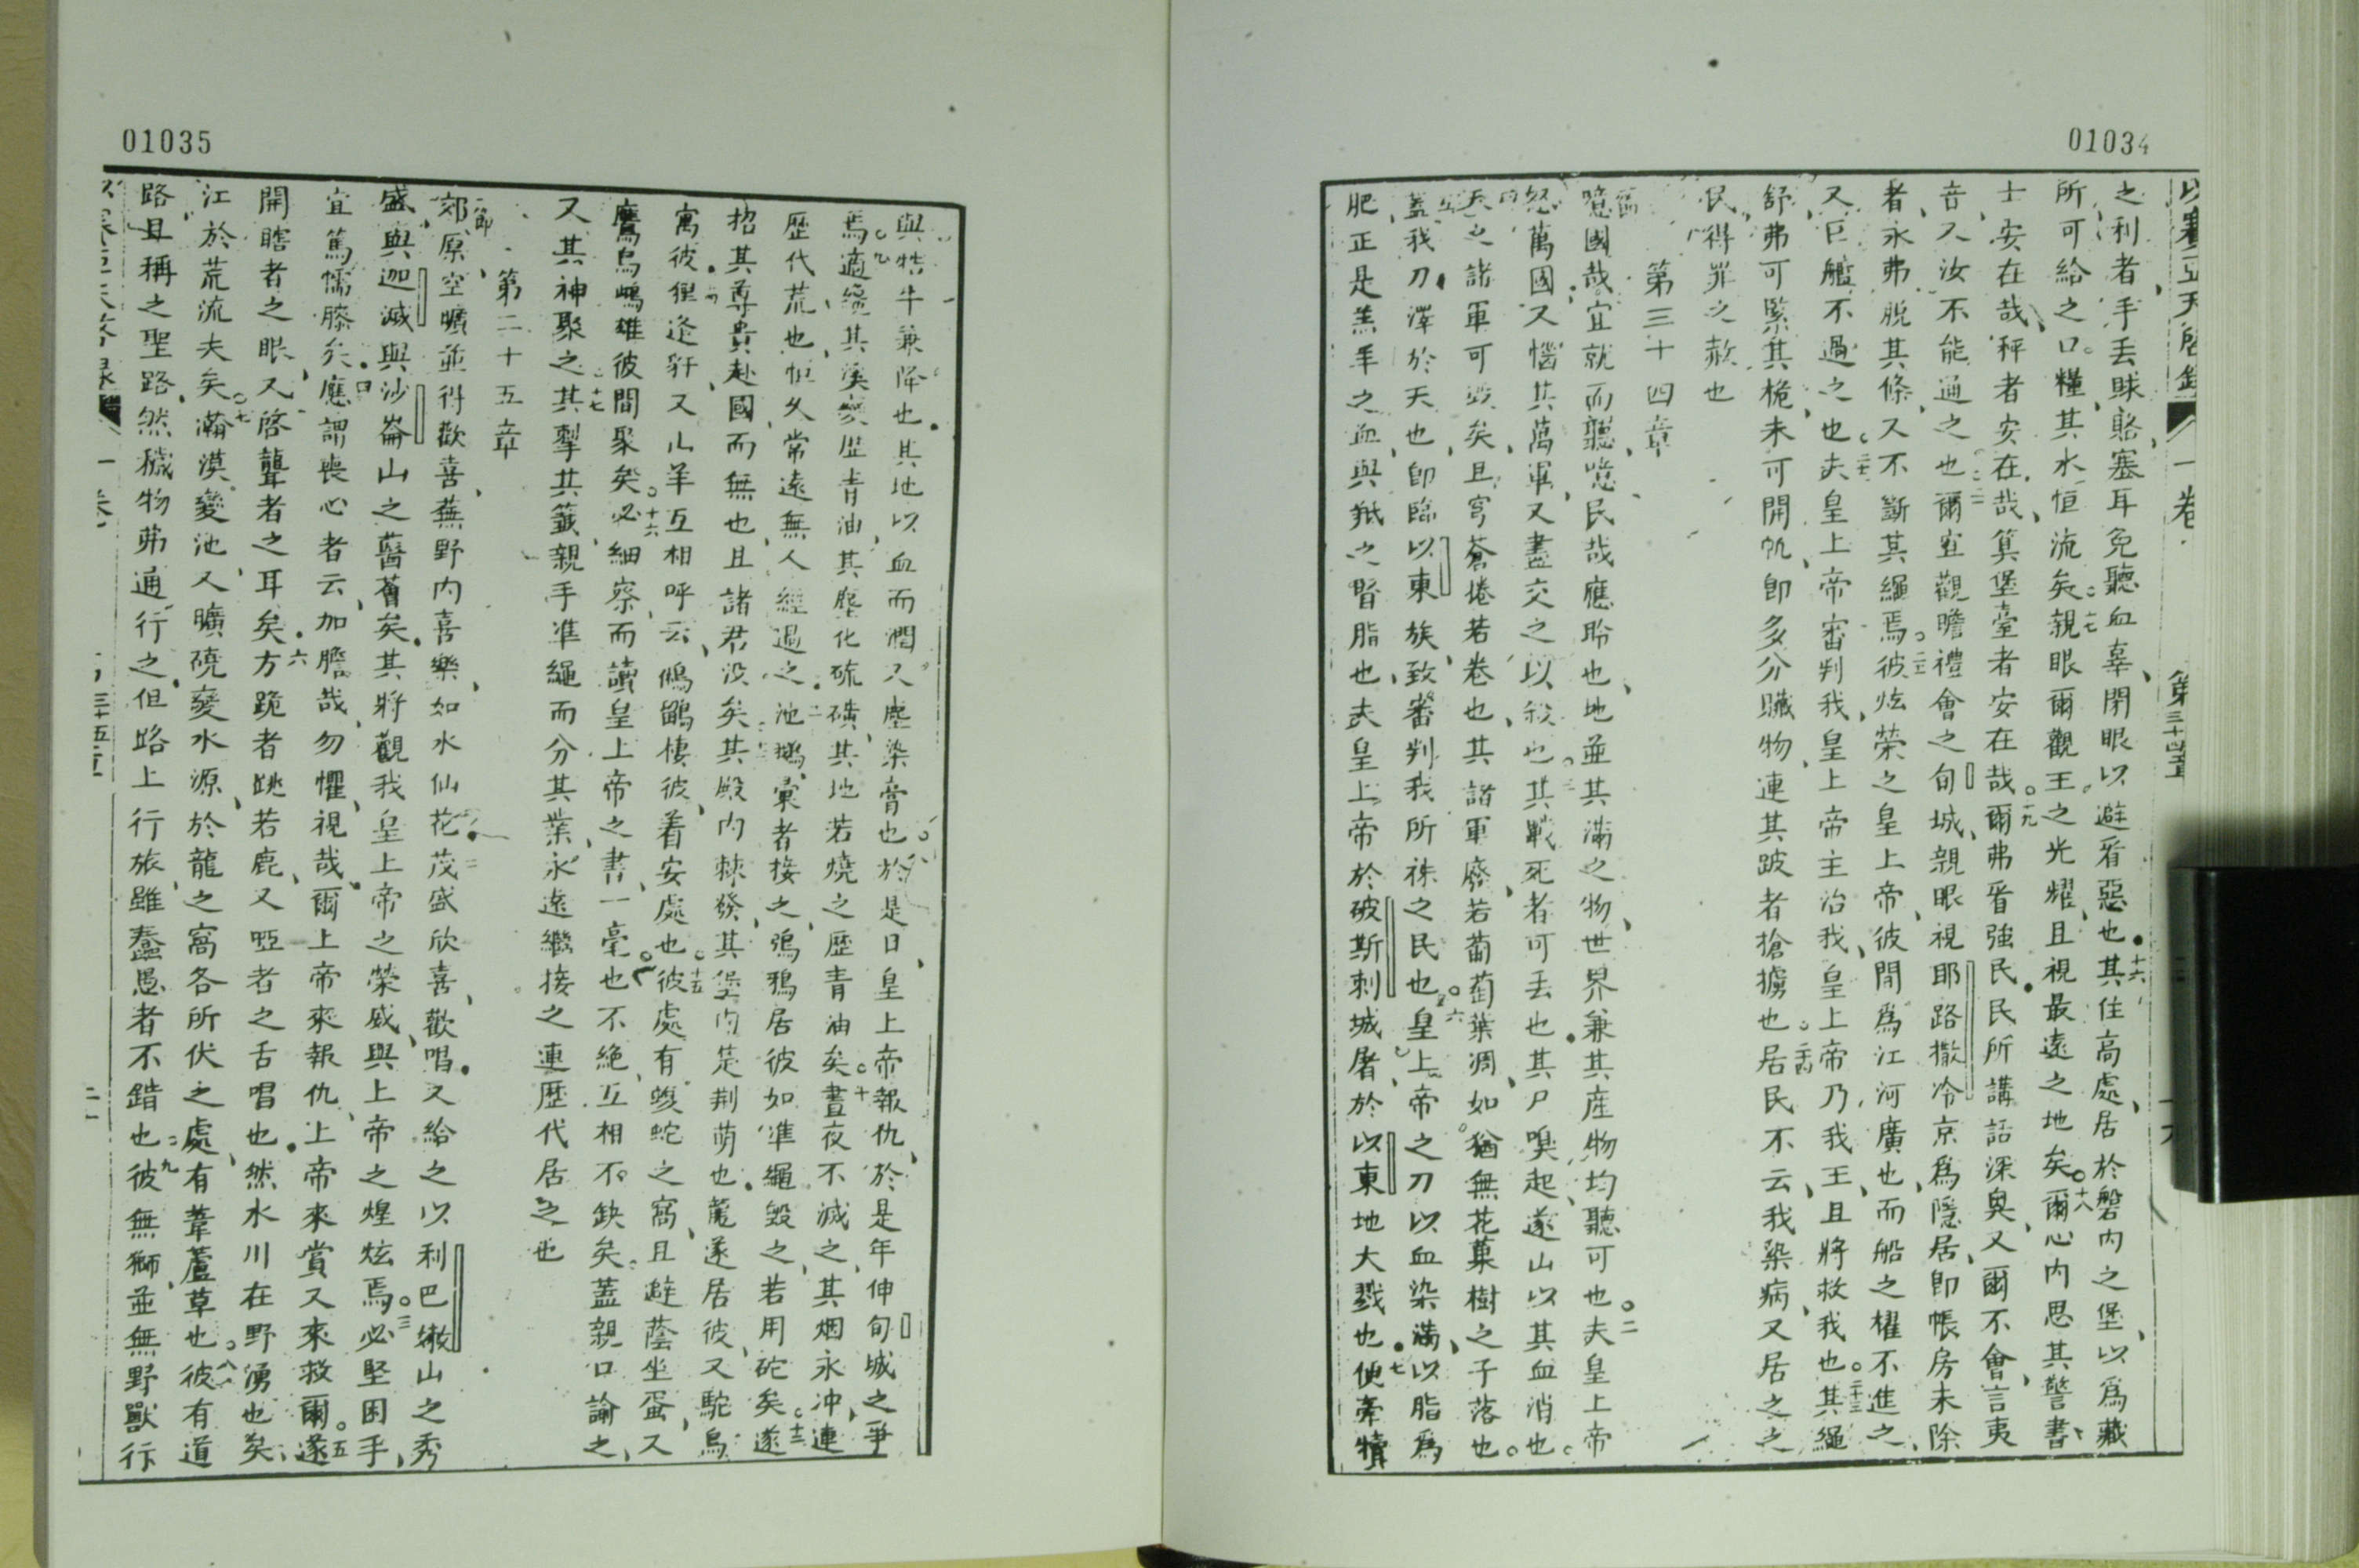 01034
以賽亞天啓錄
一卷
第三十四章
之利者手丟賕賂塞耳免聽血辜閉眼以避看惡也十六其住高處居於磐內之堡以爲藏
所可給之口糧其水恒流矣十七親眼爾觀王之光耀且視最遠之地矣十八爾心內思其警書
士安在哉秤者安在哉算堡臺者安在哉十九爾弗看強民民所講話深奧又爾不會言夷
音又汝不能通之也二十爾宜觀瞻禮會之旬城親眼視耶路撒冷京爲隱居卽帳房未除
者永弗脫其條又不斷其繩焉二一彼炫榮之皇上帝彼間爲江河廣也而船之櫂不進之
又巨艦不過之也二二夫皇上帝審判我皇上帝主治我皇上帝乃我王且將救我也二十三其繩
舒弗可緊其桅未可開帆卽多分贓物連其跛者搶擄也二四居民不云我染病又居之之
民得罪之赦也
第三十四章
噫國哉宜就而聽噫民哉應聆也地並其滿之物世界兼其產物均聽可也二夫皇上帝
怒萬國又惱其萬軍又盡交之以殺也三其戰死者可丟也其尸嗅起遂山以其血消也
四天之諸軍可毀矣且穹蒼捲若卷也其諸軍廢若葡萄葉凋如猶無花菓樹之子落也
五蓋我刀澤於天也卽臨以東族致審判我所誅之民也六皇上帝之刀以血染滿以脂爲
肥正是羔羊之血與羝之腎脂也夫皇上帝於破斯剌城屠於以東地大戮也七使牽犢
01035
與牯牛兼降也其地以血而潤又塵染膏也八於是日皇上帝報仇於是年伸旬城之爭
焉九適纔其溪變歷青油其塵化硫磺其地若燒之歷青油矣十晝夜不滅之其烟永冲連
歷代荒也恒久常遠無人經過之十一池鵜彙者接之鴞鴉居彼如準繩毀之若用砣矣十二遂
招其尊貴赴國而無也且諸君沒矣十三其殿內棘發其堡內是荆萌也蔍遂居彼又駝鳥
寓彼十四狸逢豻又山羊互相呼云鵂鶹棲彼着安處也十五彼處有蝮蛇之窩且避蔭坐蛋又
鷹烏鴟雄彼間聚矣十六必細察而讀皇上帝之書一毫也不絕互相不缺矣蓋親口諭之
又其神聚之十七其掣其籤親手準繩而分其業永遠繼接之連歷代居之也
第三十五章
一節郊原空曠並得歡喜蕪野內喜樂如水仙花二茂盛欣喜歡唱又給之以利巴嫩山之秀
盛與迦滅與沙崙山之薈蓊矣其將觀我皇上帝之榮威與上帝之煌炫焉三必堅困手
宜篤懦膝矣四應謂喪心者云加膽哉勿懼視哉爾上帝來報仇上帝來賞又來救爾五遂
開瞎者之眼又啓聾者之耳矣六方跪者跳若鹿又啞者之舌唱也然水川在野湧也矣
江於荒流夫矣七瀚漠變池又曠磽變水源於龍之窩各所伏之處有葦蘆草也八彼有道
路且稱之聖路然穢物弗通行之但路上行旅雖蠢愚者不錯也九彼無獅並無野獸行
以賽亞天啓錄
一卷
三十五章